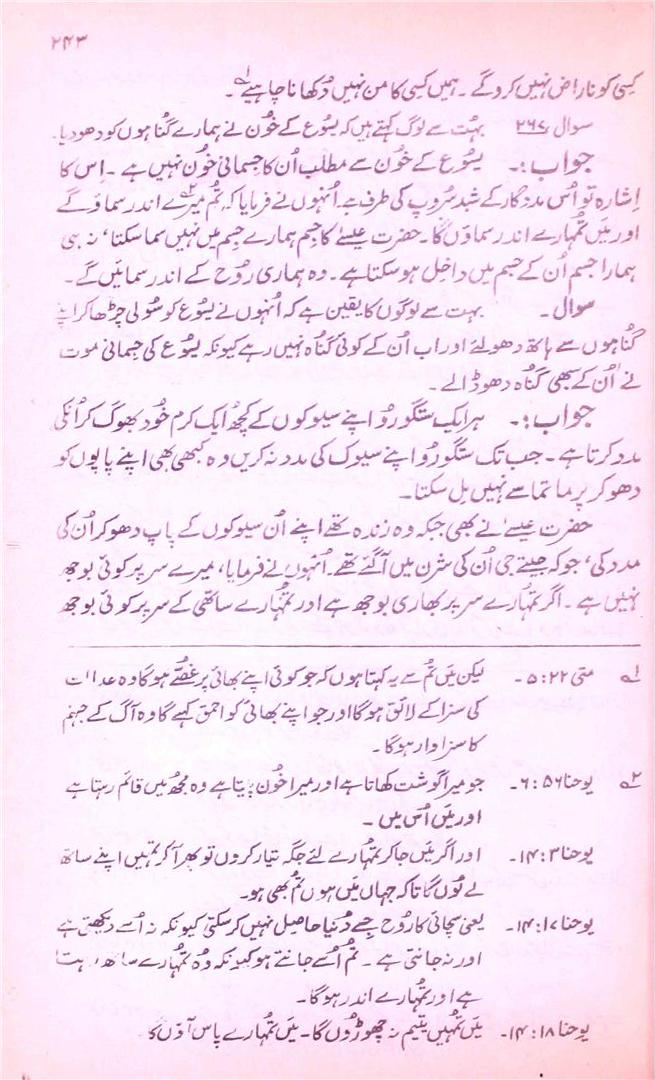 ۲۴۳
کِسی کو ناراض نہیں کرو گے ۔ ہمیں کِسی کا من نہیں دُکھانا چاہیے ؎۱ ۔
سوال ۲۶۷ بہُت سے لوگ کہتے ہیں کہ یسُوع کے خُون نے ہمارے گُناہوں کو دھو دیا۔
جواب :۔ یسُوع کے خُون سے مطلب اُن کا جِسمانی خُون نہیں ہے ۔ اِس کا
اِشارہ تو اُس مددگار کے شبد سرُوپ کی طرف ہے۔ اُنہوں نے فرمایا کہ تُم میرے ؎۲ اندر سماؤ گے
اور مَیں تُمہارے اندر سماؤں گا ۔ حضرت عیسےٰ کا جِسم ہمارے جِسم میں نہیں سما سکتا، نہ ہی
ہمارا جِسم اُن کے جِسم میں داخِل ہو سکتا ہے ۔ وہ ہماری رُوح کے اندر سمائیں گے ۔
سوال ۔ بہت سے لوگوں کا یقین ہے کہ اُنہوں نے یسُوع کو سُولی چڑھا کر اپنے
گناہوں سے ہاتھ دھو لئے اور اب اُن کے کوئی گُناہ نہیں رہے کیونکہ یسُوع کی جِسمانی موت
نے اُن کے سبھی گناہ دھو ڈالے ۔
جواب :۔ ہر ایک ستگورُو اپنے سیوکوں کے کُچھ ایک کرم خُود بھوگ کر اُنکی
مدد کرتا ہے ۔ جب تک ستگورُو اپنے سیوک کی مدد نہ کریں وہ کبھی بھی اپنے پاپوں کو
دھو کر پرماتما سے نہیں مِل سکتا ۔
حضرت عیسےٰ نے بھی جبکہ وہ زندہ تھے اپنے اُن سیوکوں کے پاپ دھو کر اُن کی
مدد کی، جو کہ جیتے جی اُن کی شرن میں آ گئے تھے۔ اُنہوں نے فرمایا، میرے سر پر کوئی بوجھ
نہیں ہے ۔ اگر تُمہارے سر پر بھاری بوجھ ہے اور تُمہارے ساتھی کے سر پر کوئی بوجھ
؎۱ متی ۵:۲۲ ۔ لیکن مَیں تُم سے یہ کہتا ہوں کہ جو کوئی اپنے بھائی پر غُصّے ہوگا وہ عدالت
کی سزا کے لائق ہوگا اور جو اپنے بھائی کو احمق کہے گا وہ آگ کے جہنم
کا سزاوار ہوگا ۔
؎۲ یوحنا ۶:۵۶ ۔ جو میرا گوشت کھاتا ہے اور میرا خُون پیتا ہے وہ مجھ میں قائم رہتا ہے
اور مَیں اُس میں ۔
یوحنا ۱۴:۳ ۔ اور اگر مَیں جا کر تمہارے لئے جگہ تیار کروں تو پھر آ کر تمہیں اپنے ساتھ
لے لُوں گا تاکہ جہاں مَیں ہوں تُم بھی ہو ۔
یوحنا ۱۴:۱۷ ۔ یعنی سچائی کا رُوح جِسے دُنیا حاصِل نہیں کر سکتی کیونکہ نہ اُسے دیکھتی ہے
اور نہ جانتی ہے ۔ تُم اُسے جانتے ہو کیونکہ وُہ تُمہارے ساتھ رہتا
ہے اور تُمہارے اندر ہوگا ۔
یوحنا ۱۴:۱۸ ۔ مَیں تُمہیں یتیم نہ چھوڑُوں گا ۔ مَیں تُمہارے پاس آؤں گا